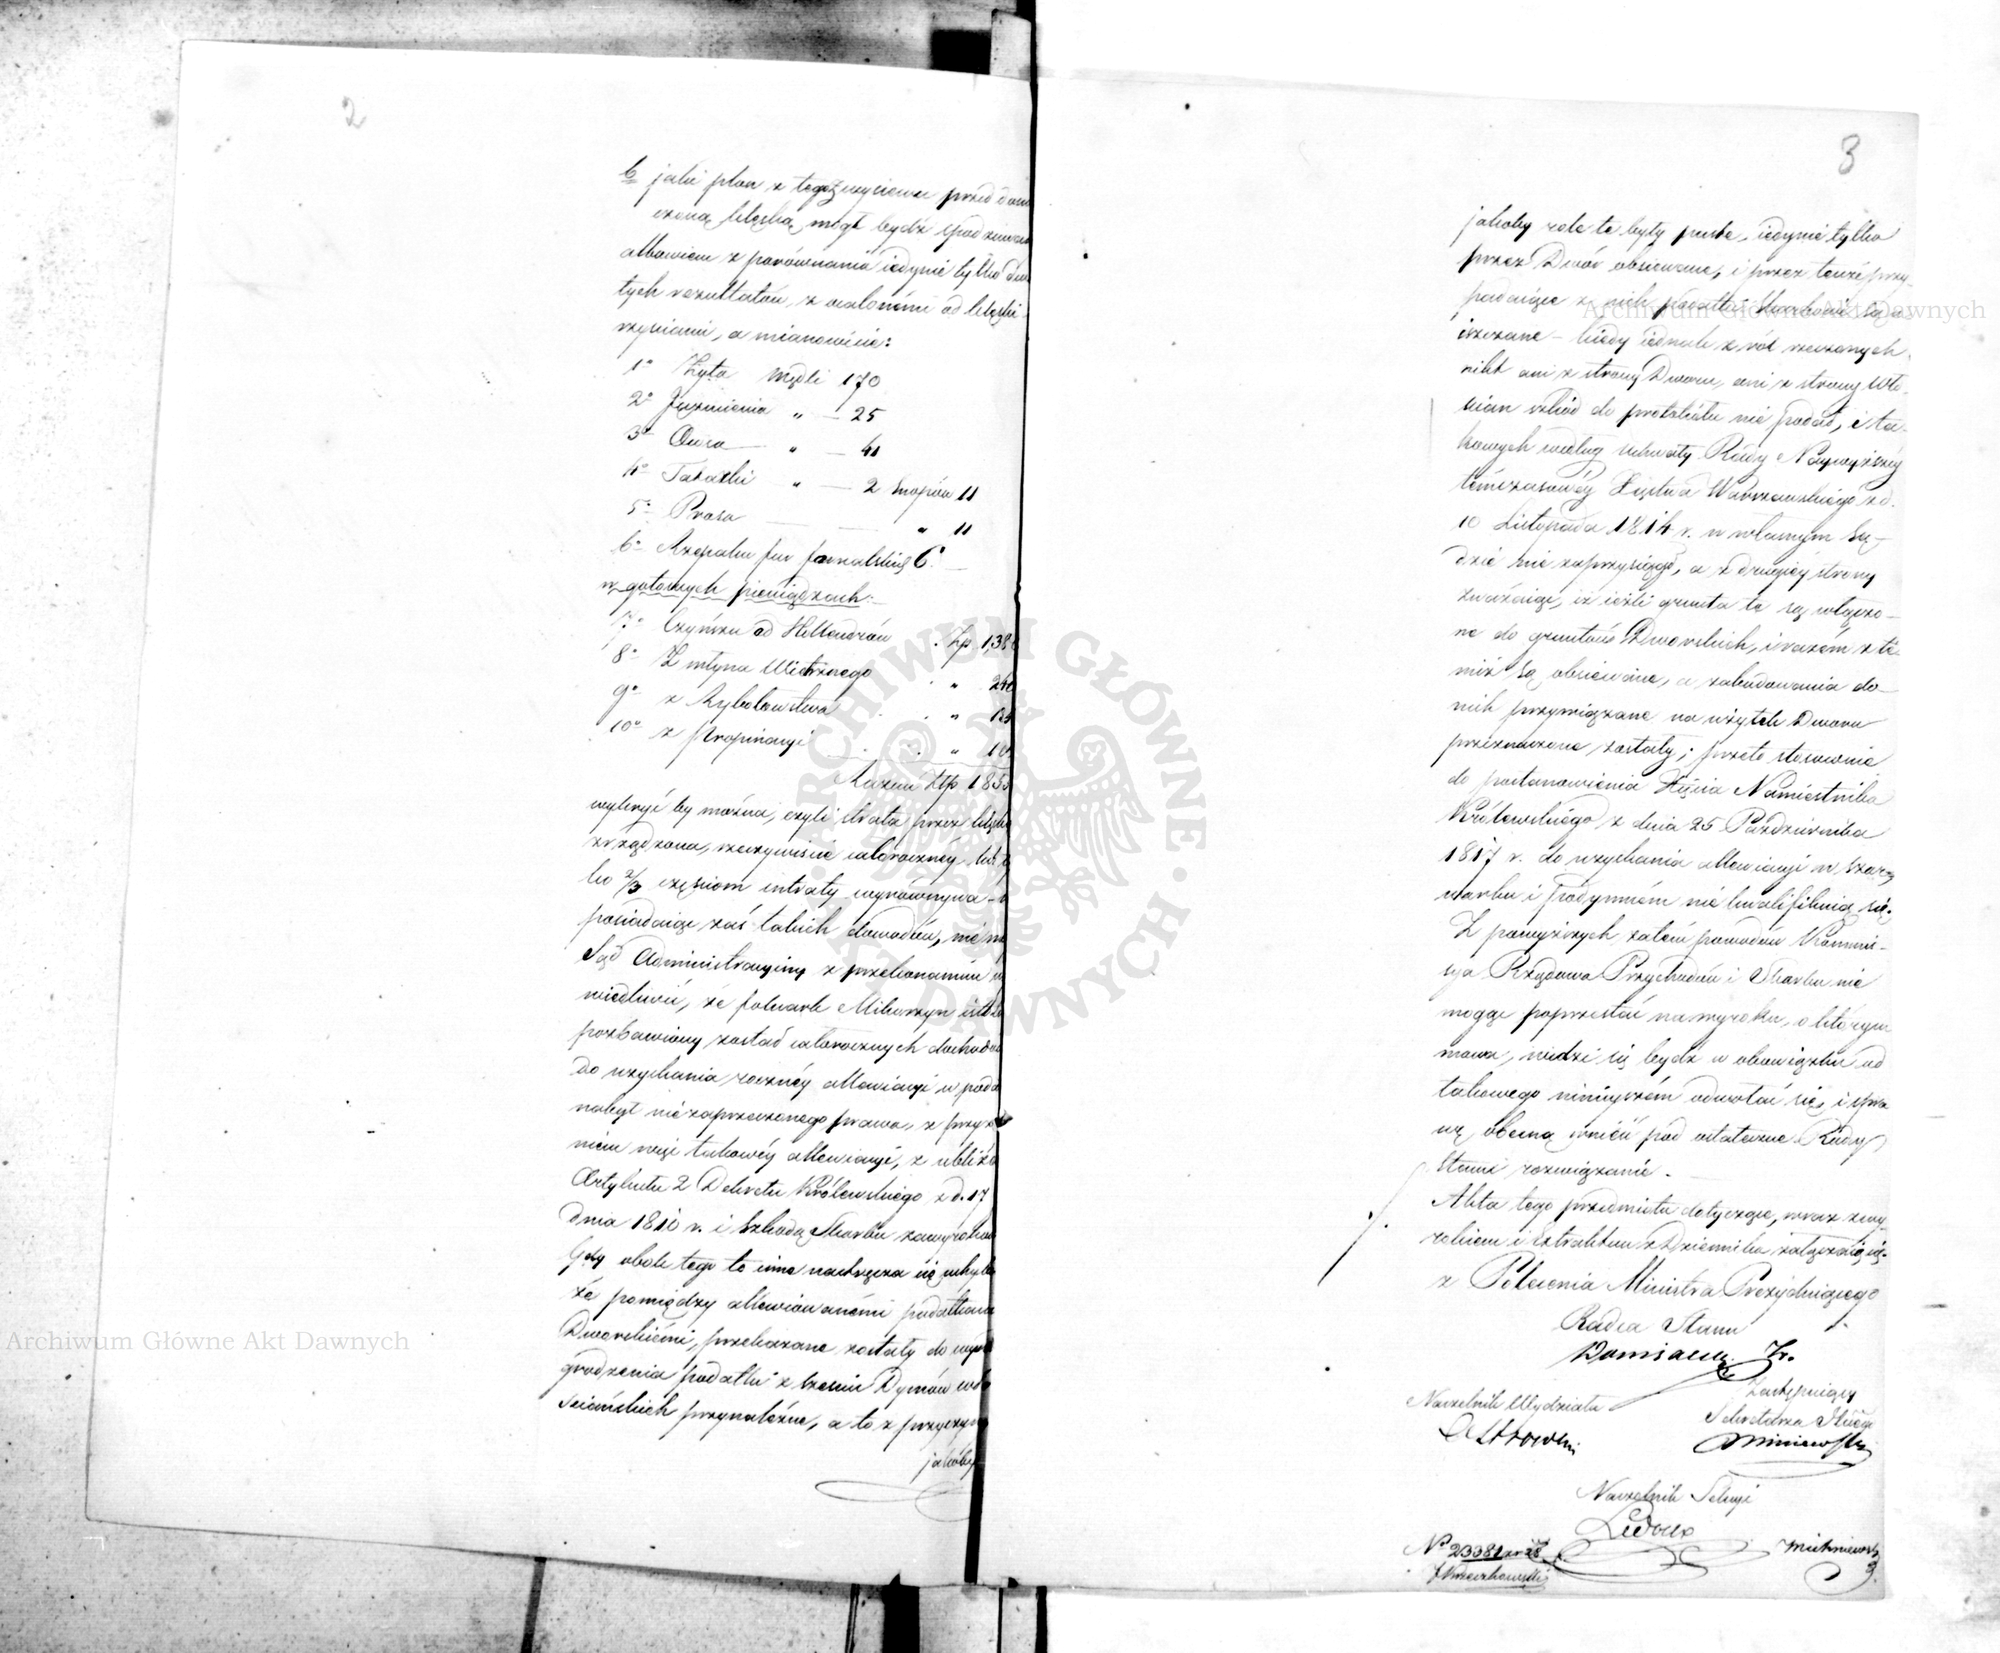 2
b jaki plon z tegoż wysiewu przed dozn
czoną klęską mógł bydź spodziewan
albowiem z porównania iedynie tylko dwu
tych rezultatów, z ocalonémi od klęski
częściami, a mianowicie:
1° Żyta Mędli 170
2° Jęczmienia " — 25
3° Owsa — " — 41
4° Tatarki " — 2 Snopów 11
5° Prosa — " 11
6° Rzepaku fur fornalskich 6
w gotowych pieniądzach:
7° Czynszu od Hollendrów . Zp 1,38
8° Z młyna Wietrznego . " 240
9° z Rybołowstwa . . "
10° z Propinacyi . . " 10
Razem Złp 1855
wykryć by można, czyli strata przez klęskę
zrządzona, rzeczywiście całoroczney lub ty
ko 2/3 częściom intraty wyrównywa
posiadaiąc zaś takich dowodów, nie m
Sąd Administracyiny z przekonaniem
niedliwić, że folwark Mikorzyn
pozbawiony został całorocznych dochodów
do uzyskania roczney allewiacyi w poda
nabył niezaprzeczonego prawa, z przyz
niem więc takowéy allewiacyi, z ubliże
Artykułu 2 Dekretu Królewskiego z d. 17
dnia 1810 r. i szkodą Skarbu zawyrokow
Gdy obok tego to inne nastręcza się uchyb
że pomiędzy allewiowanémi podatkami
Dworskiémi, przekazane zostały do wyna
grodzenia podatki z sześciu Dymów wło
ściańskich przynależne, a to z przyczyny
jakoby
3
jakoby role te były puste, iedynie tylko
przez Dwór obsiewane, i przez tenże przy-
padaiące z nich podatki Skarbowi są u-
iszczane — kiedy iednak z ról rzeczonych
nikt ani z strony Dworu, ani z strony Wło-
ścian szkód do protokółu nie podał, i ta-
kowych według uchwały Rady Naywyższéy
témczasowéy Xięstwa Warszawskiego z d.
10 Listopada 1814 r. w własnym Są-
dzie nie zaprzysiągł, a z drugiéy strony
zważaiąc, iż ieżli grunta te są włączo-
ne do gruntów Dworskich, i razem z te-
miż są obsiewane, a zabudowania do
nich przywiązane na użytek Dworu
przeznaczone zostały; przeto stosownie
do postanowienia Xięcia Namiestnika
Królewskiego z dnia 25 Października
1817 r. do uzyskania allewiacyi w szar-
warku i podymném nie kwalifikuią się.
Z powyższych zatém powodów Kommis-
sya Rządowa Przychodów i Skarbu nie
mogąc poprzestać na wyroku, o którym
mowa, widzi się bydź w obowiązku od
takowego ninieyszém odwołać się, i spra
wę obecną wnieść pod ostateczne Rady
Stanu rozwiązanie. —
Akta tego przedmiotu dotyczące, wraz z wy-
rokiem i Extraktem z Dziennika załączaią się.
z Polecenia Ministra Prezyduiącego
Radca Stanu
Zastępuiący
Naczelnik Wydziału
Sekretarza Jlnego
Ostrowski
Naczelnik Sekcyi
Ledoux
N° 23381